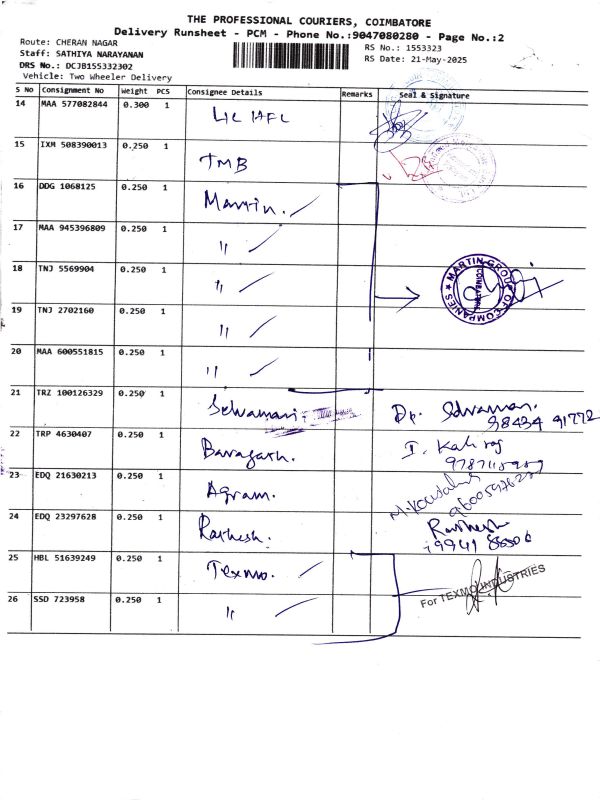 THE PROFESSIONAL COURIERS, COIMBATORE
Delivery Runsheet - PCM - Phone No.:9047080280 - Page No.:2
Route: CHERAN NAGAR
Staff: SATHIYA NARAYANAN
DRS No.: DCJB155332302
Vehicle: Two Wheeler Delivery
RS No.: 1553323
RS Date: 21-May-2025
S No Consignment No Weight PCS Consignee Details Remarks Seal & Signature
14 MAA 577082844 0.300 1 LIC HFL
15 IXM 508390013 0.250 1 TMB
16 DDG 1068125 0.250 1 Martin.
17 MAA 945396809 0.250 1 "
18 TNJ 5569904 0.250 1 "
MARTIN GROUP OF COMPANIES
COIMBATORE
19 TNJ 2702160 0.250 1 "
20 MAA 600551815 0.250 1 "
21 TRZ 100126329 0.250 1 Selvamani.
98434 91772
22 TRP 4630407 0.250 1
23 EDQ 21630213 0.250 1 Agram.
24 EDQ 23297628 0.250 1
25 HBL 51639249 0.250 1 Texmo.
For TEXMO INDUSTRIES
26 SSD 723958 0.250 1 "